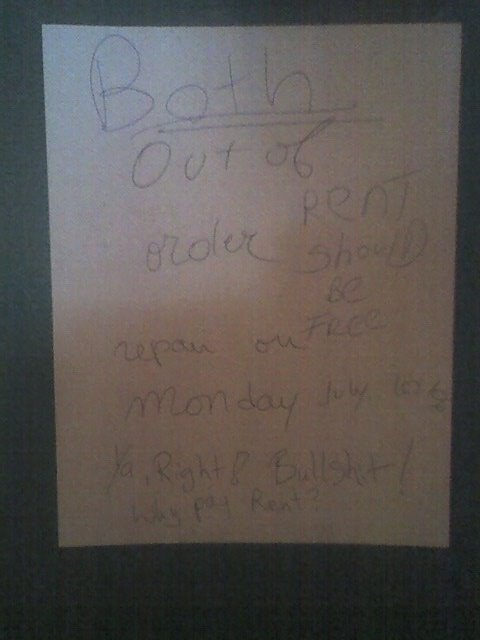 Both
Out of
order
RENT
ShoulD
Be
FRee
repair on
Monday July
Ya, Right? Bullshit!
Why pay Rent?